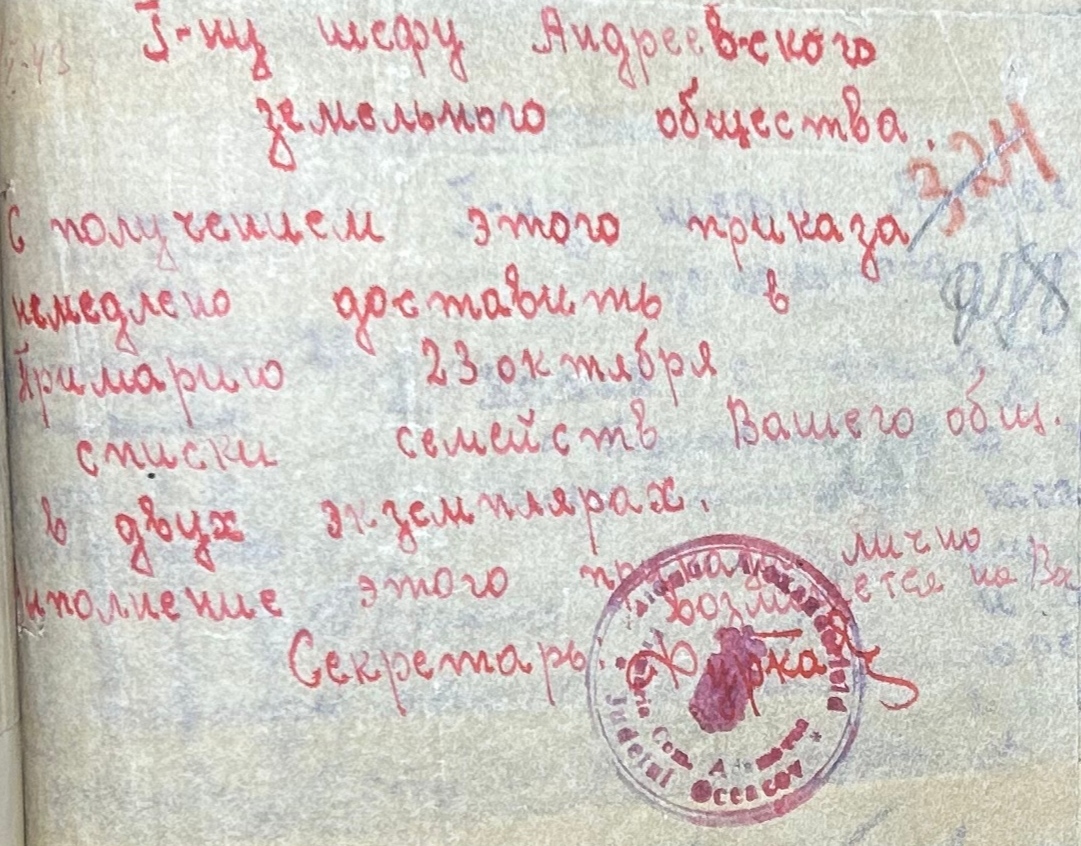 Г-ну шефу Андреевского
земельного общества.
3,24
С получением этого приказа
немедлено доставить в
Примарию 23 октября
списки семейств Вашего общ.
в двух экземплярах.
Выполнение этого приказа лично
возлогается на Вас
Секретарь:
Județul Oceacov